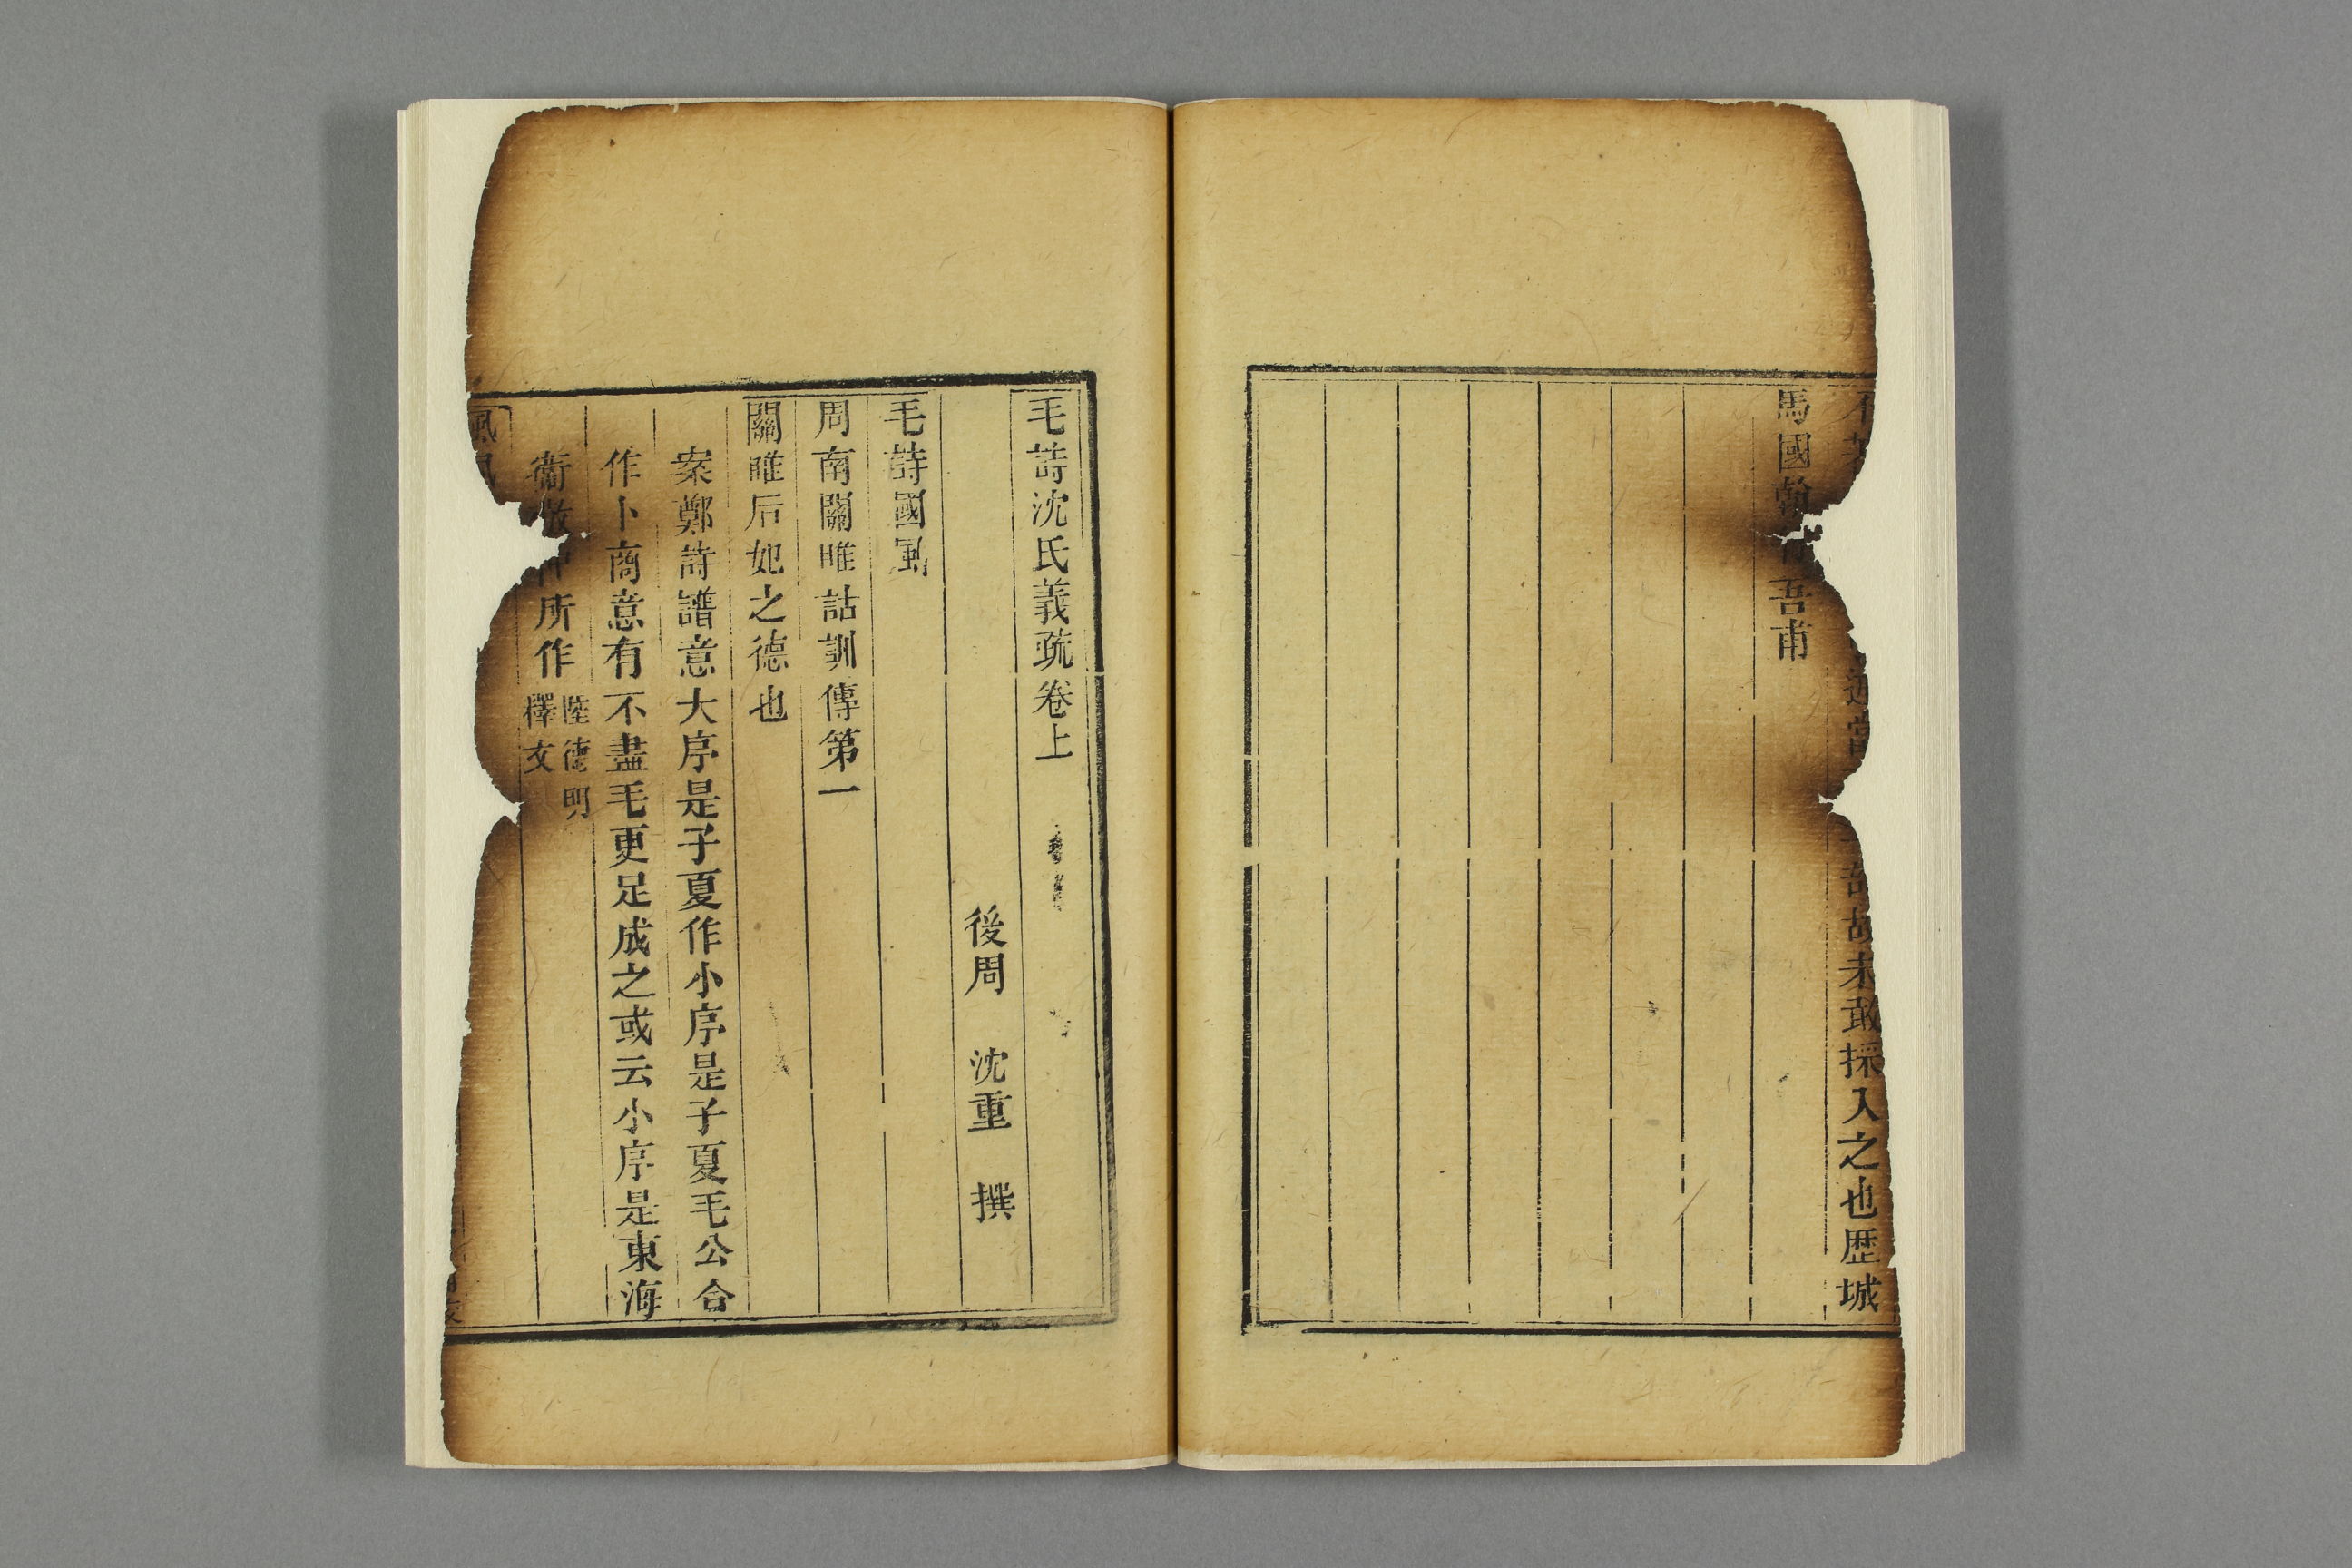 故未敢採入之也歴城
馬國翰
吾甫
毛詩沈氏義疏卷上
後周　沈重　撰
毛詩國風
周南關雎詁訓傳第一
關雎后妃之德也
案鄭詩譜意大序是子夏作小序是子夏毛公合
作卜商意有不盡毛更足成之或云小序是東海
衞敬仲所作
陸德明
釋文
風風